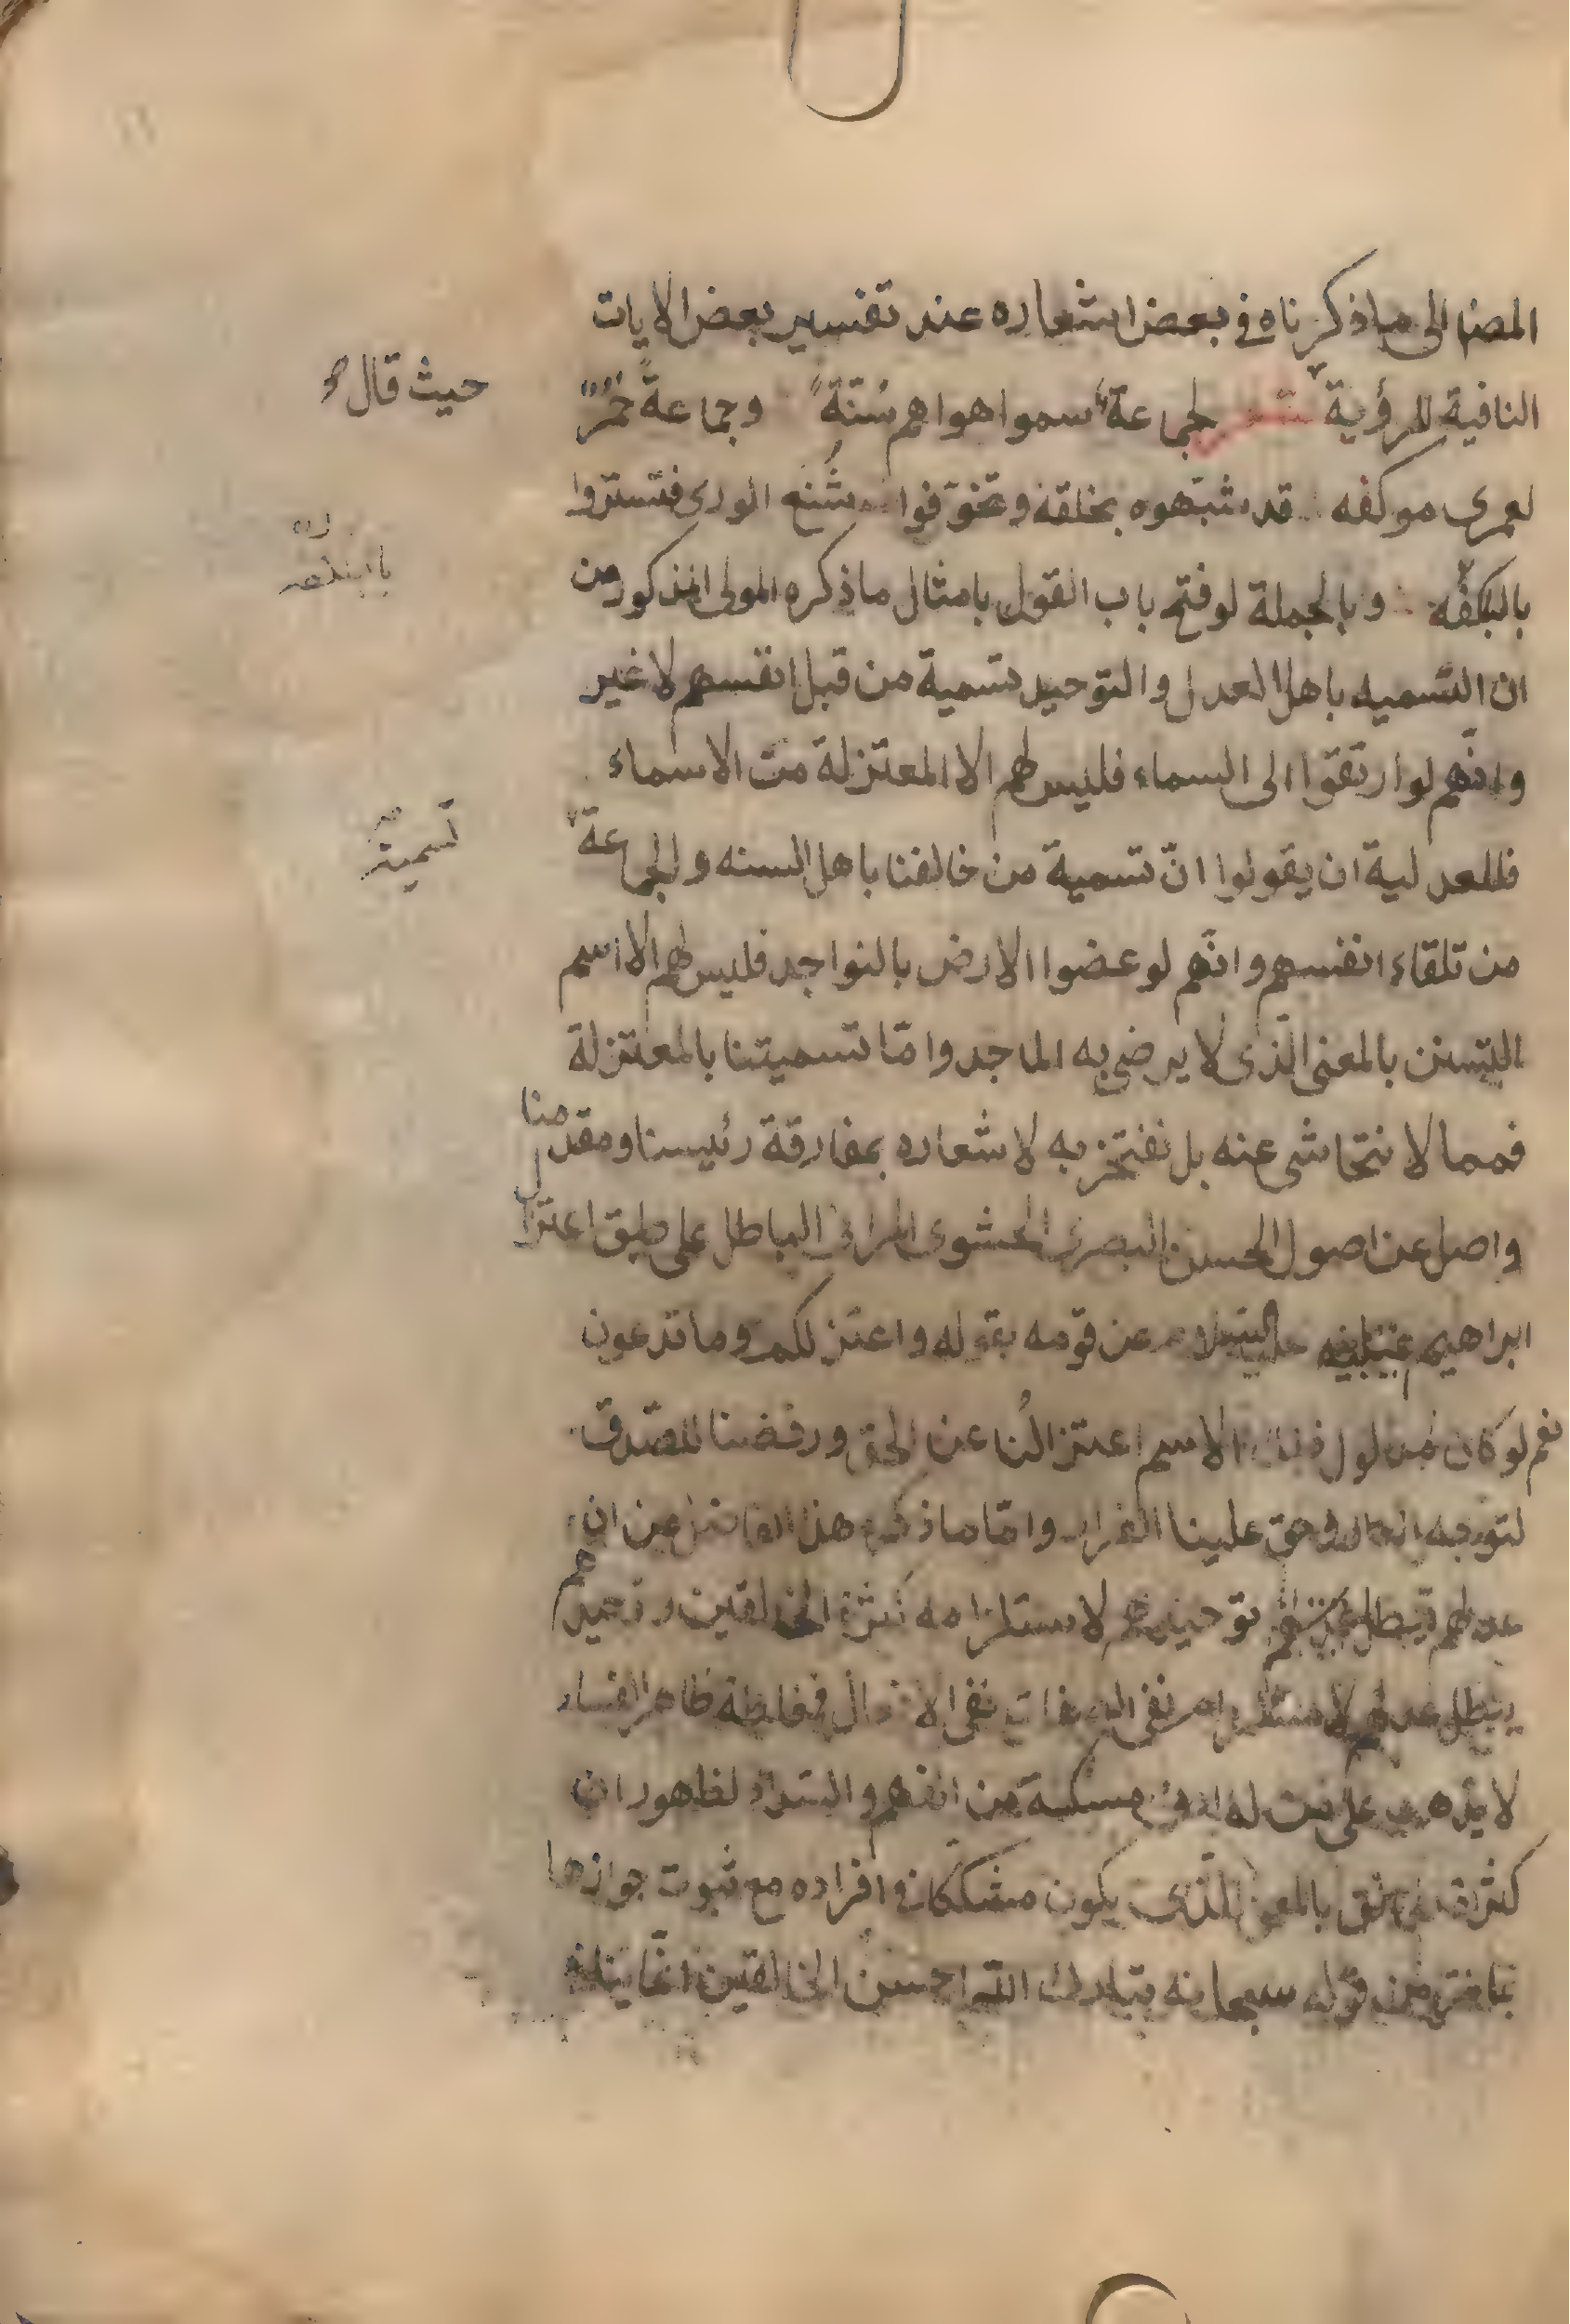 المصنا الى ما ذكرناه في بعض اشعاره عند تفسير بعض الايات
النافية للرؤية شعر لجماعة سموا هواهم سُنّة وجماعةً حمر
حيث قال
لعمرى موكفه قد شبّهوه بخلقه وتخوّفوا شُنَع الورى فتستروا
بالبلكفه وبالجملة لو فتح باب القول بامثال ما ذكره المولى المذكور من
ان التسميه باهل العدل والتوحيد تسمية من قبل انفسهم لا غير
وانّهم لو ارتقوا الى السماء فليس لهم الا المعتزلة من الاسماء
فللعدلية ان يقولوا انّ تسمية من خالفنا باهل السنه والجماعة
تسميته
من تلقاء انفسهم وانّهم لو عضوا الارض بالنواجد فليس لهم الا اسم
التسنن بالمعنى الّذى لا يرضى به الماجد وامّا تسميتنا بالمعتزلة
فمما لا نتحاشى عنه بل نفتخر به لاشعاره بمفارقة رئيسنا ومقدمنا
واصل عن اصول الحسن البصرى الحشوى المرائى الباطل على طبق اعتزال
ابراهيم عليه السلام عن قومه بقوله واعتزلكم وما تدعون
نعم لو كان مدلول ذلك الاسم اعتزالُنا عن الحق ورفضنا للصّدق
لتوجه العار وحق علينا الفرار وامّا ما ذكره هذا الفاضل من ان
عدلهم يبطل توحيدهم لاستلزامه كثرة الخالقين وتوحيدهم
يبطل عدلهم لاستلزام نفى الصفات نفى الافعال فمغلطة ظاهر الفساد
لا يذهب على من له ادنى مسكة من الفهم والسداد لظهور ان
كثرة الخالق بالمعنى الّذى يكون مشككا فى افراده مع ثبوت جوازها
من قوله سبحانه فتبارك اللّه احسنُ الخالقين انّما ينافى